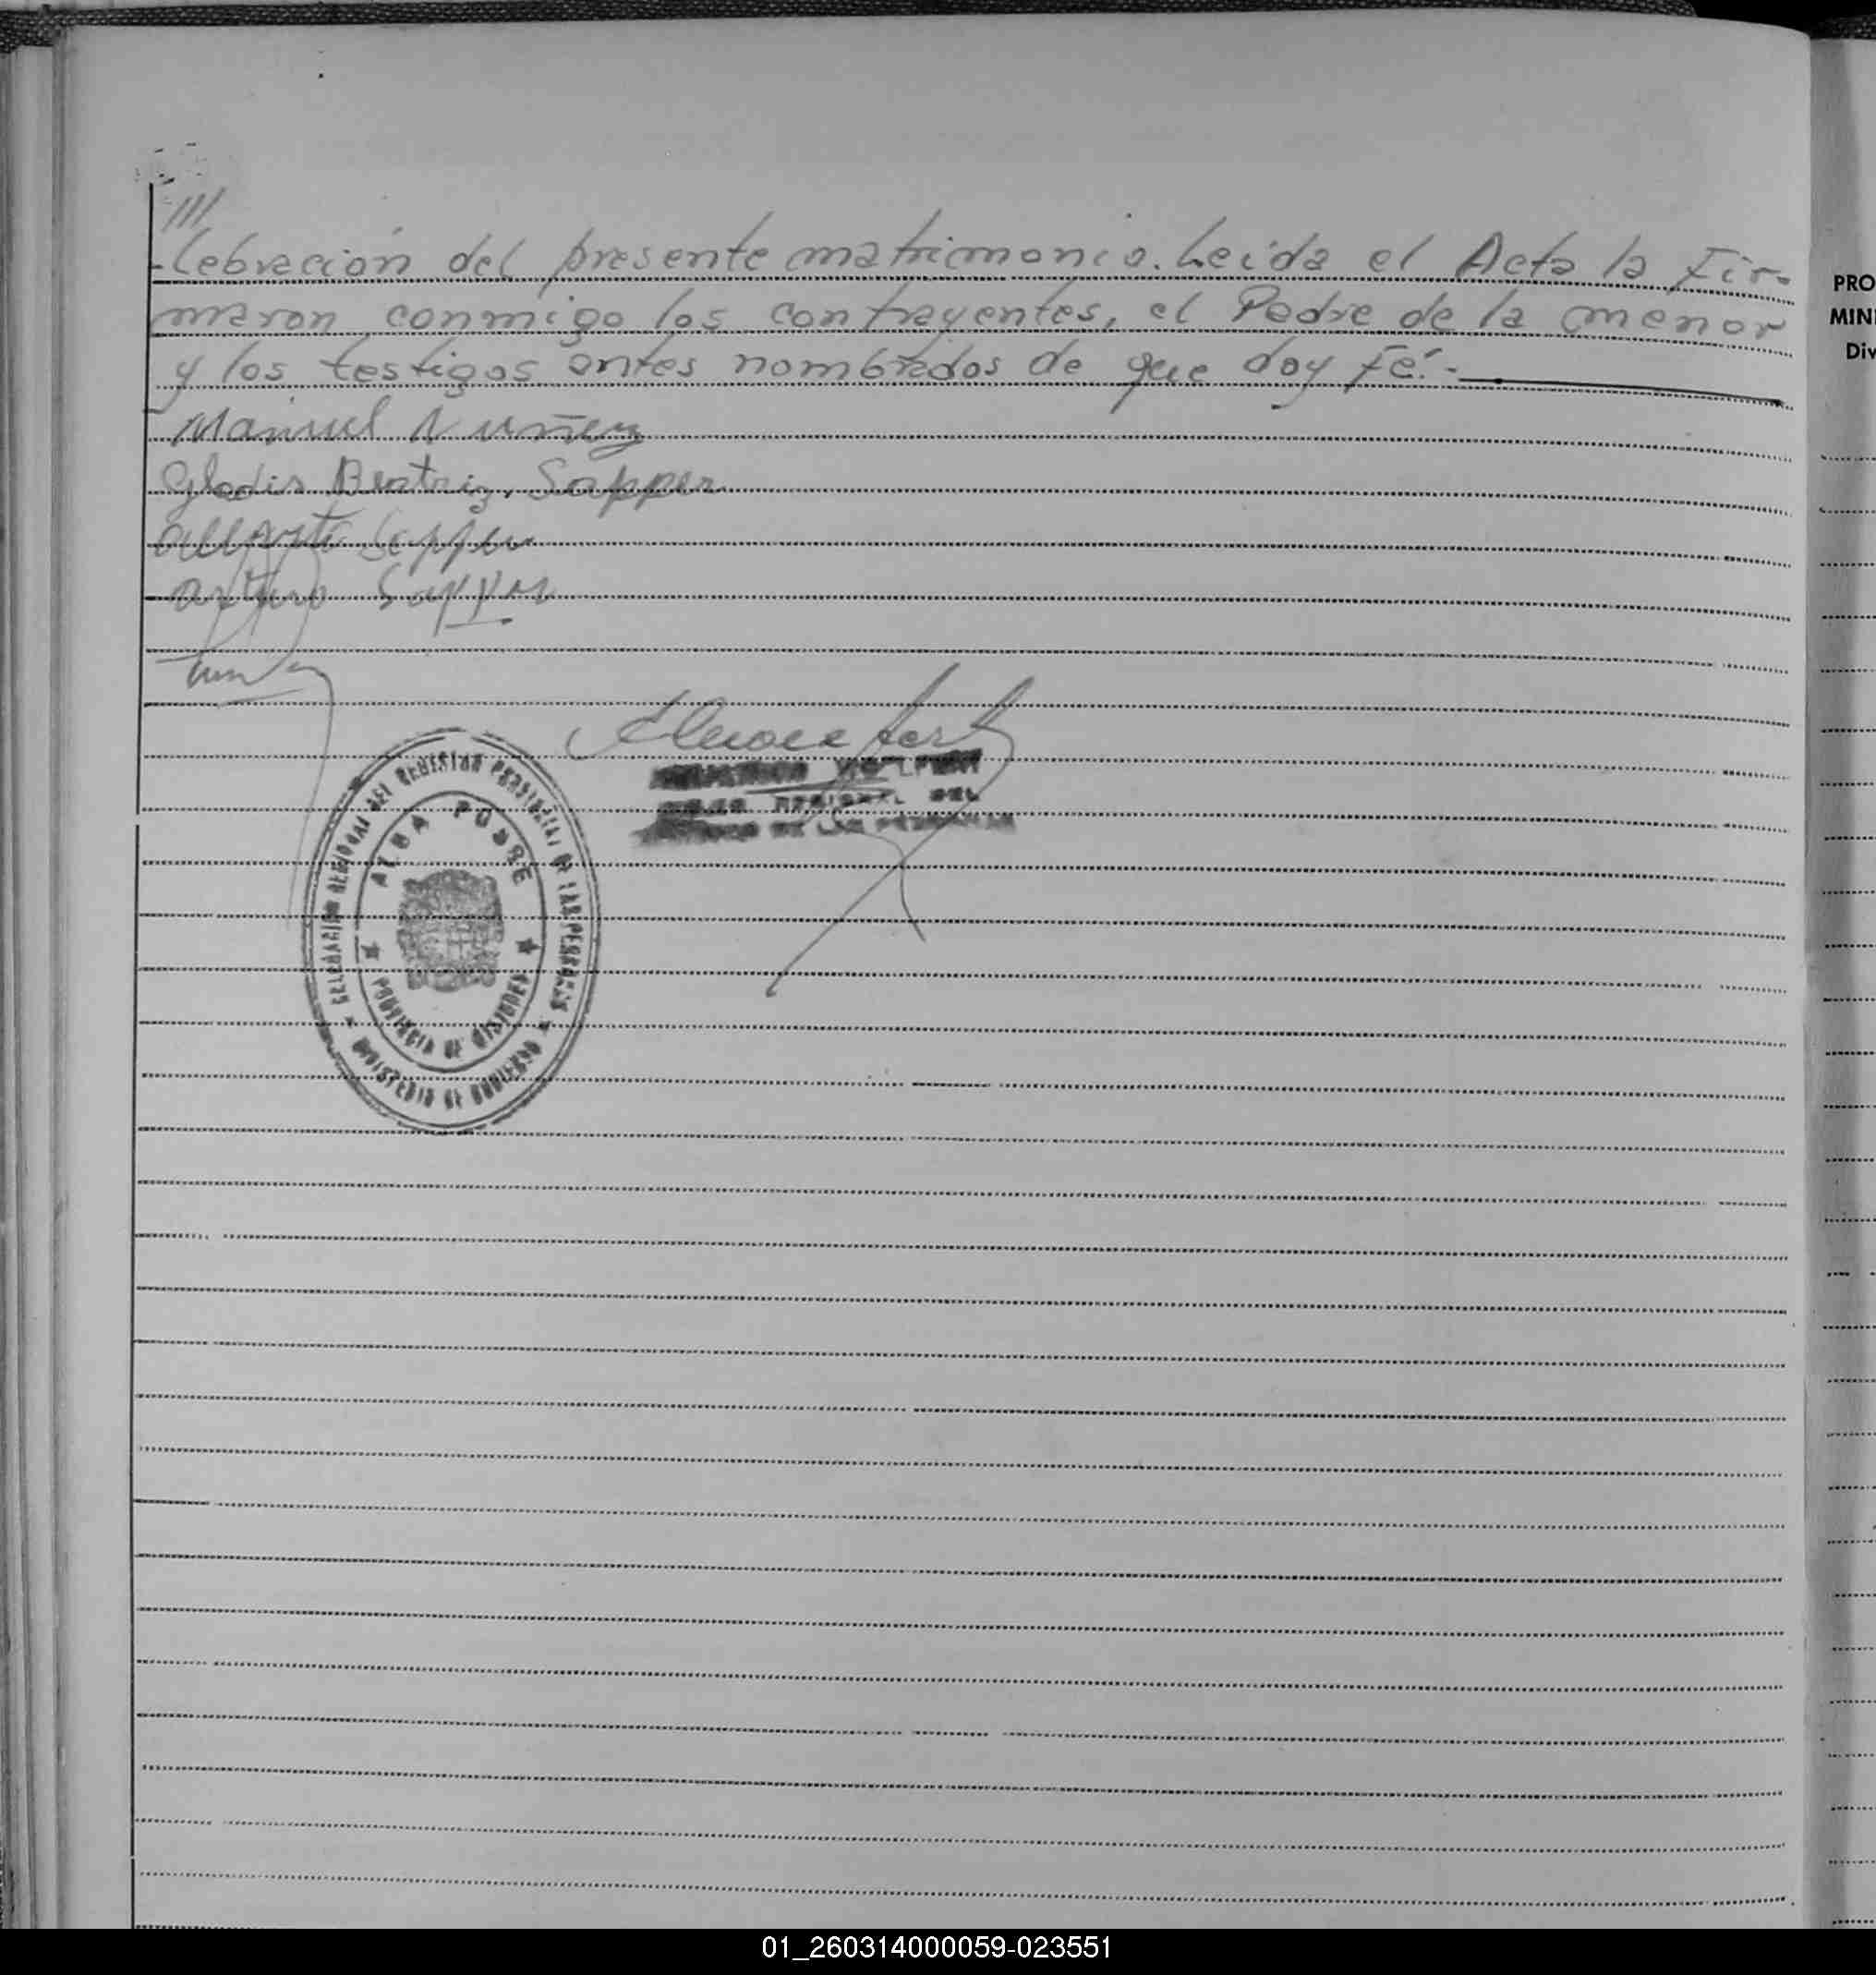 ///
-lebración del presente matrimonio. Leída el Acta la Fir-
maron conmigo los contrayentes, el Padre de la menor
y los testigos antes nombrados de que doy Fé.-
Manuel Nuñez
Gladis Beatriz Sapper
Sapper
Arturo Sapper
REGIONAL DEL
DE LAS PERSONAS
DELEGACION REGIONAL DEL REGISTRO PROVINCIAL DE LAS PERSONAS
ALBA POSSE
PROVINCIA DE MISIONES
MINISTERIO DE GOBIERNO
PRO
MINI
Div
01_260314000059-023551